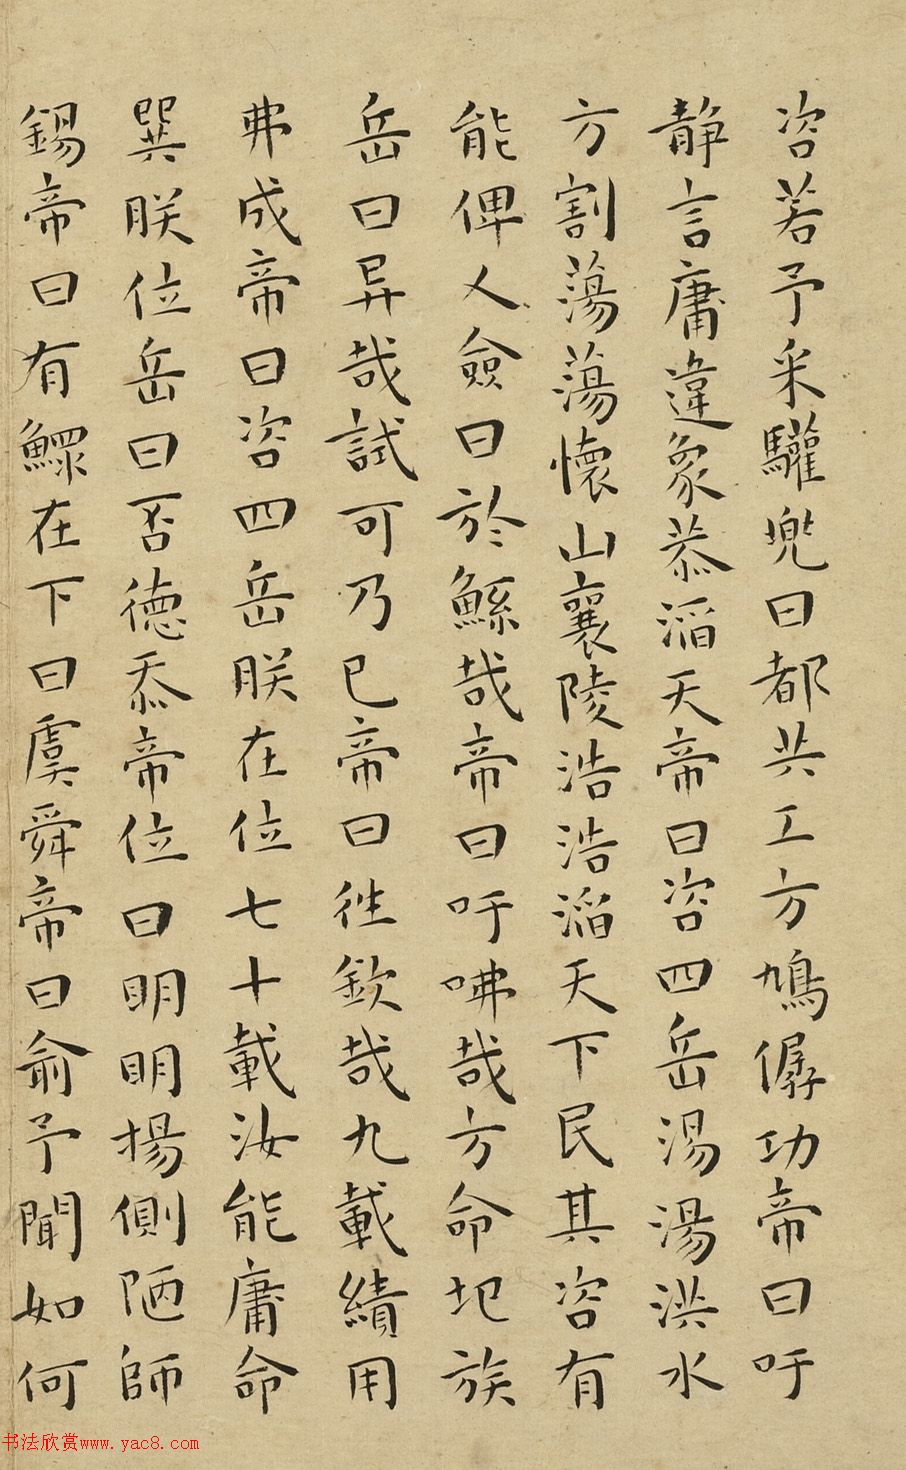 咨若予采驩兜曰都共工方鳩僝功帝曰吁
静言庸違象恭滔天帝曰咨四岳湯湯洪水
方割蕩蕩懷山襄陵浩浩滔天下民其咨有
能俾乂僉曰於鯀哉帝曰吁咈哉方命圯族
岳曰异哉試可乃已帝曰往欽哉九載績用
弗成帝曰咨四岳朕在位七十載汝能庸命
巽朕位岳曰否德忝帝位曰明明揚側陋師
錫帝曰有鰥在下曰虞舜帝曰俞予聞如何
书法欣赏www.yac8.com